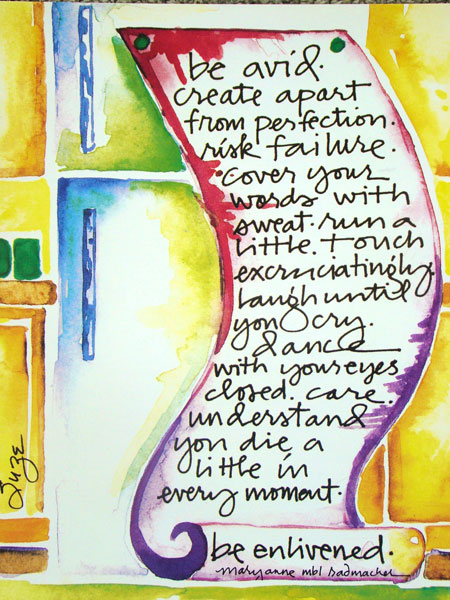 be avid.
create apart
from perfection.
risk failure.
cover your
words with
sweat. run a
little. touch
excruciatingly.
laugh until
you cry.
dance
with your eyes
closed. care.
understand
you die a
little in
every moment.
be enlivened.
maryanne mbl radmacher
Suze